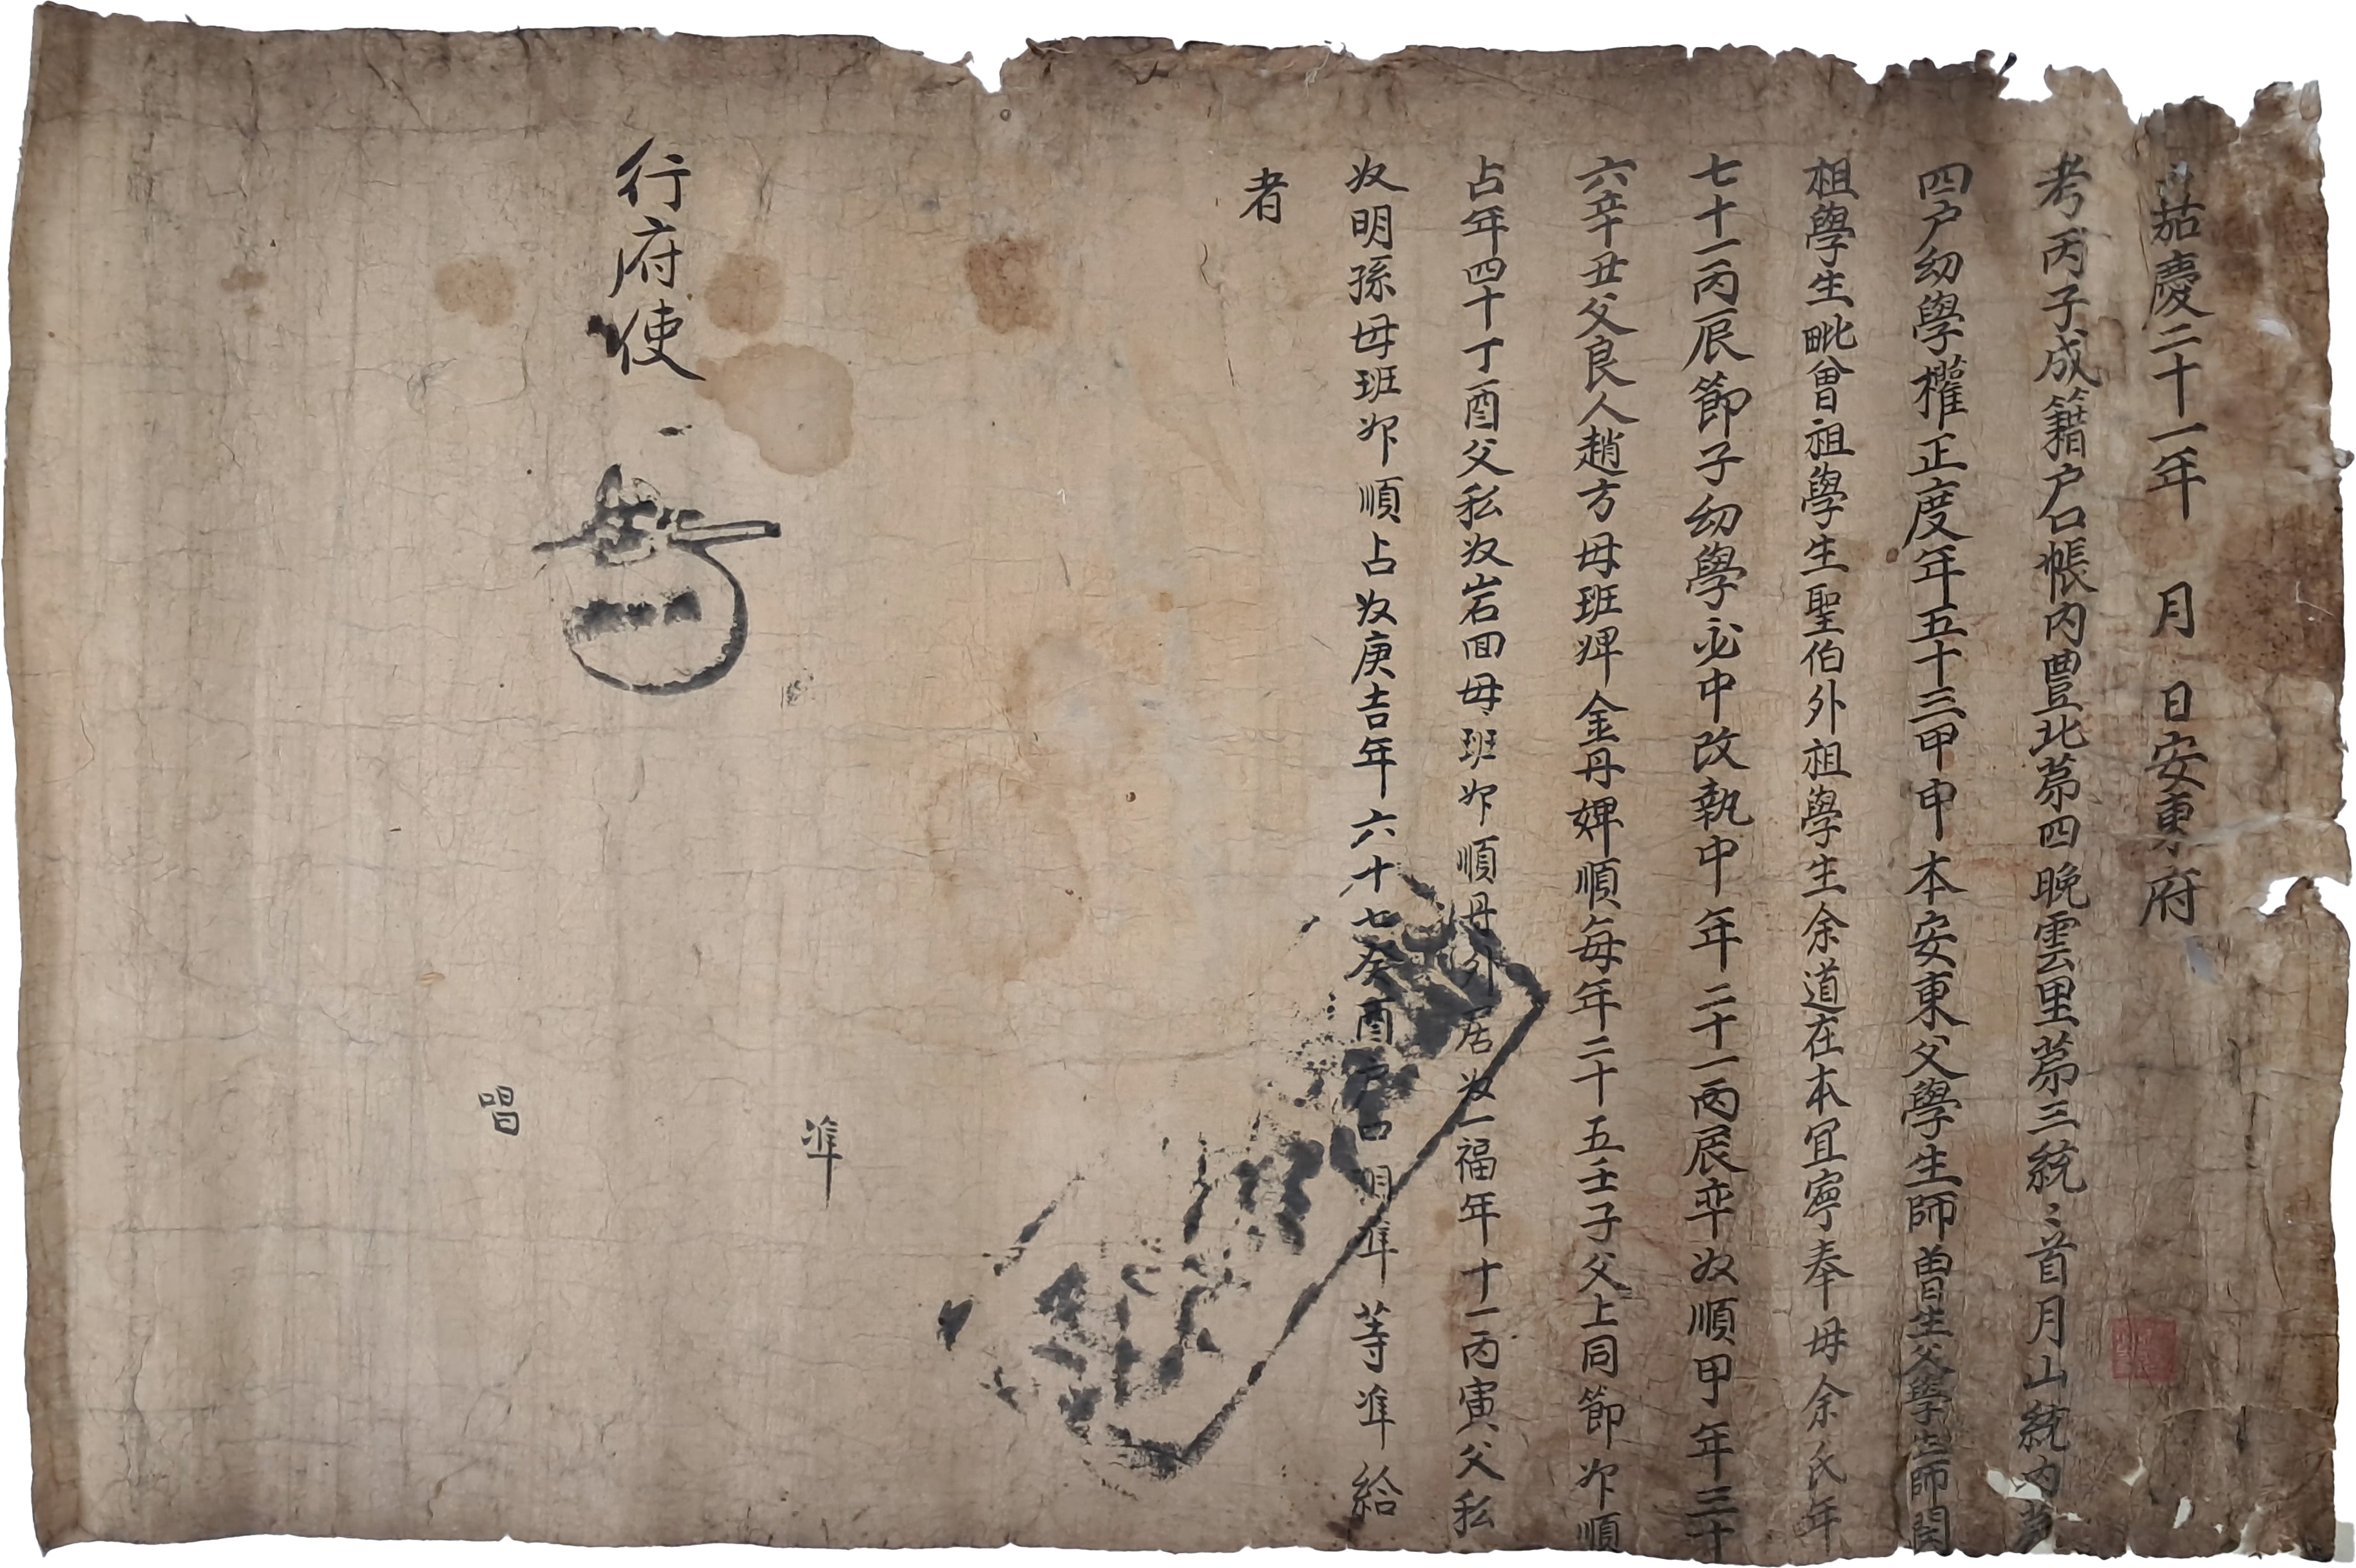 嘉慶二十一年 月 日安東府
考丙子成籍户口帳內豊北苐四晚雲里苐三統〻首月山統內苐
四户幼學權正度年五十三甲申本安東父學生師曾生父學生師閔
祖學生毗曾祖學生聖伯外祖學生余道在本宜寧奉母余氏年
七十一丙辰節子幼學必中改執中年二十一丙辰卒奴順甲年三十
六辛丑父良人趙方母班婢金丹婢順每年二十五壬子父上同節卯順
占年四十丁酉父私奴岩回母班卯順丹外居奴一福年十一丙寅父私
奴明孫母班卯順占奴庚吉年六十七癸酉户口相凖等凖給
者
行府使
凖
唱